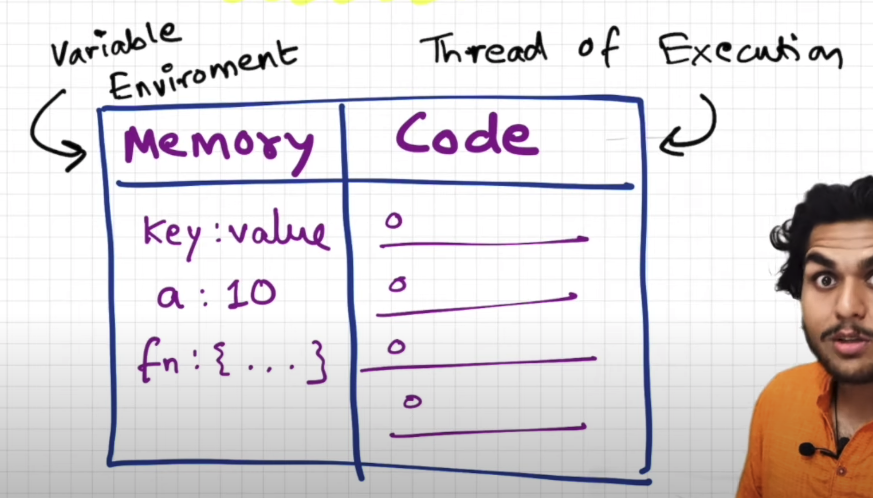 Variable
Enviroment
Thread of Execution
Memory
Code
key : value
a : 10
fn : { . . . }